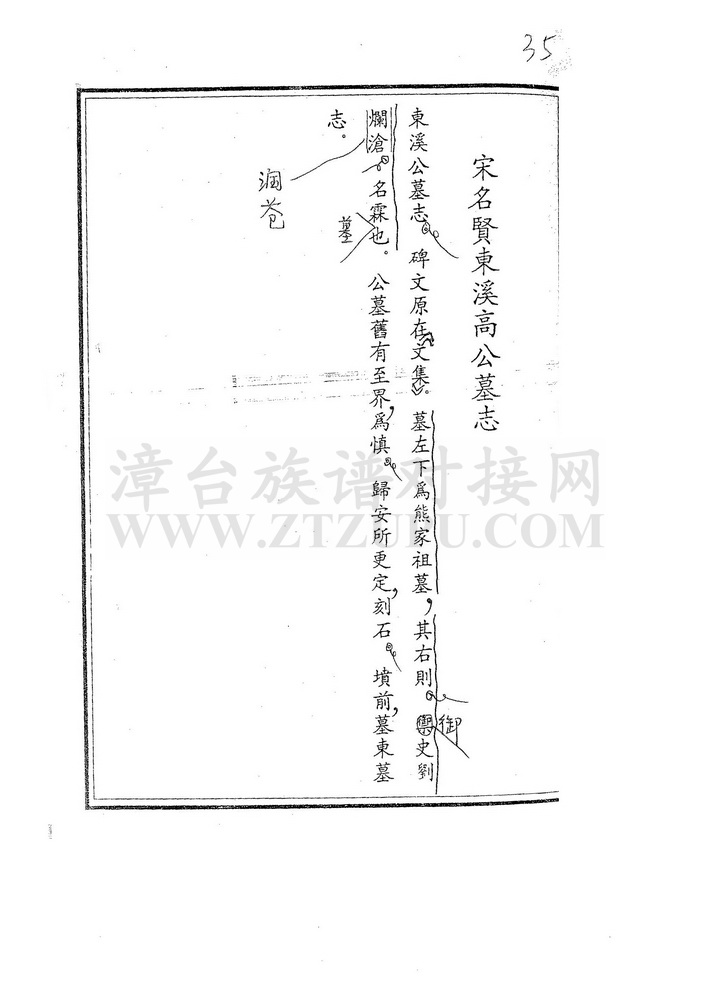 35
宋名賢東溪高公墓志
東溪公墓志。碑文原在文集》。墓左下爲熊家祖墓，其右則。輿史劉
御
爛滄。名霖也。公墓舊有至界，爲慎。歸安所更定，刻石。墳前，墓東墓
墓
志。
润苍
漳台族谱对接网
WWW.ZTZUPU.COM